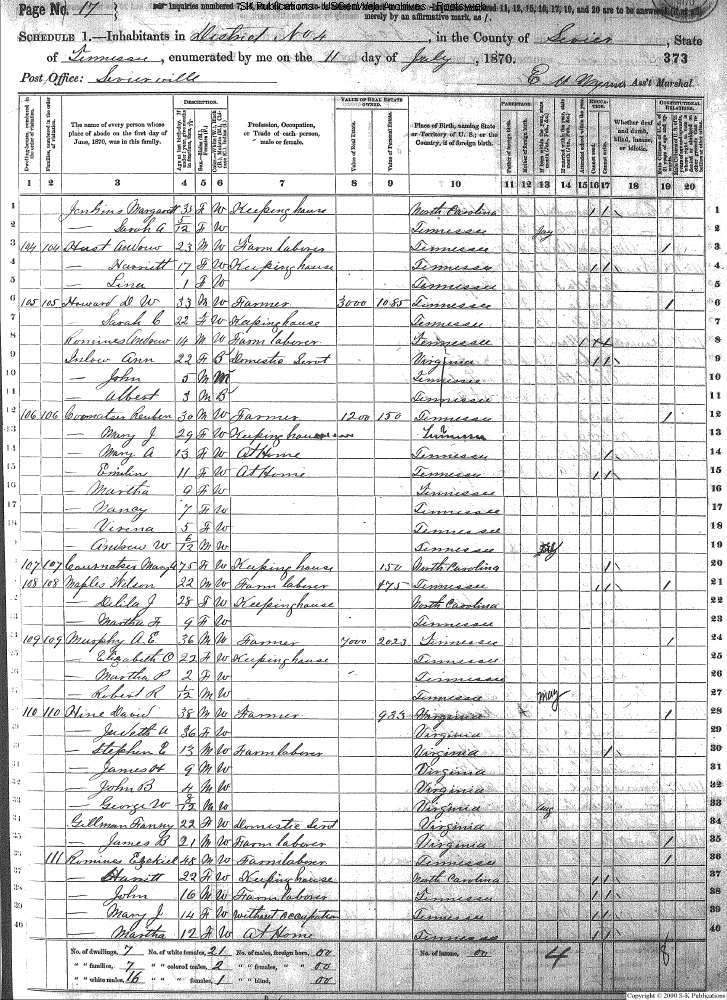 Page No. 17
Inquiries numbered 7,
S-K Publications - USGenWeb Archives - Rootsweb
11, 12, 15, 16, 17, 19, and 20 are to be answered
merely by an affirmative mark, as /.
SCHEDULE 1.—Inhabitants in District No 4, in the County of Sevier, State
of Tennessee, enumerated by me on the 11 day of July, 1870. 373
Post Office: Sevierville Ass't Marshal.
The name of every person whose place of abode on the first day of June, 1870, was in this family.
DESCRIPTION.
Profession, Occupation, or Trade of each person, male or female.
VALUE OF REAL ESTATE OWNED.
Value of Real Estate.
Value of Personal Estate.
Place of Birth, naming State or Territory of U. S.; or the Country, if of foreign birth.
PARENTAGE.
Father of foreign birth.
Mother of foreign birth.
EDUCATION.
Attended school within the year.
Cannot read.
Cannot write.
Whether deaf and dumb, blind, insane, or idiotic.
CONSTITUTIONAL RELATIONS.
1 2 3 4 5 6 7 8 9 10 11 12 13 14 15 16 17 18 19 20
1 Jenkins Margarett 35 F W Keeping house North Carolina / / 1
2 — Sarah A 5/12 F W Tennessee Jay 2
3 104 104 Hust Andrew 23 M W Farm laborer Tennessee / 3
4 — Harriett 17 F W Keeping house Tennessee / / 4
5 — Lina 1 F W Tennessee 5
6 105 105 Howard D W 33 M W Farmer 3000 1085 Tennessee / 6
7 — Sarah C 22 F W Keeping house Tennessee 7
8 Romines Andrew 14 M W Farm laborer Tennessee / 8
9 Inlow Ann 22 F B Domestic Servt Virginia / / 9
10 — John 5 M M Tennessee 10
11 — Albert 3 M B Tennessee 11
12 106 106 Coonatser Reuben 30 M W Farmer 1200 150 Tennessee / 12
13 — Mary J 29 F W Keeping house 13
14 — Mary A 13 F W At Home Tennessee / 14
15 — Emilin 11 F W At Home Tennessee / / 15
16 — Martha 9 F W Tennessee 16
17 — Nancy 7 F W Tennessee 17
18 — Virena 5 F W Tennessee 18
19 — Andrew W 6/12 M W Tennessee 19
20 107 107 Cournatser Mary A 75 F W Keeping house 150 North Carolina / 20
21 108 108 Maples Wilson 22 M W Farm laborer 475 Tennessee / / / 21
22 — Delila J 28 F W Keeping house North Carolina 22
23 — Martha F 9 F W Tennessee 23
24 109 109 Murphy A. E. 36 M W Farmer 7000 2023 Tennessee / 24
25 — Elizabeth C 22 F W Keeping house Tennessee 25
26 — Martha P 2 F W Tennessee 26
27 — Robert R 1/12 M W Tennessee May 27
28 110 110 Hine David 38 M W Farmer 933 Virginia / 28
29 — Judeth A 36 F W Virginia 29
30 — Stephen E 13 M W Farm laborer Virginia / 30
31 — James H 9 M W Virginia 31
32 — John B 4 M W Virginia 32
33 — George W M W Virginia Aug 33
34 Gillman Fanny 22 F W Domestic Servt Virginia 34
35 — James B 21 M W Farm laborer Virginia / 35
36 111 Romines Ezekiel 45 M W Farm laborer Tennessee / 36
37 — Harritt 22 F W Keeping house North Carolina / / 37
38 — John 16 M W Farm laborer Tennessee / / 38
39 — Mary J 14 F W without occupation Tennessee / / 39
40 — Martha 12 F W At Home Tennessee / / 40
No. of dwellings, 7 No. of white females, 21 No. of males, foreign born, 00 No. of insane, 00 4 8
" " families, 7 " " colored males, 2 " " females, " " 00
" " white males, 16 " " " females, 1 " " blind, 00
Copyright © 2000 S-K Publications